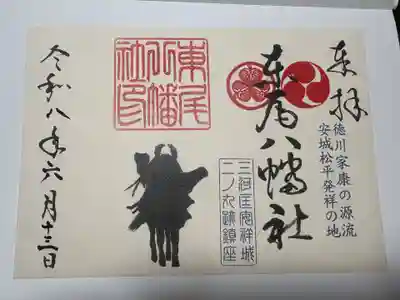 奉拝
徳川家康の源流
安城松平発祥の地
東尾八幡社
東尾
八幡
社印
三河国安祥城
二ノ丸跡鎮座
令和八年六月十三日